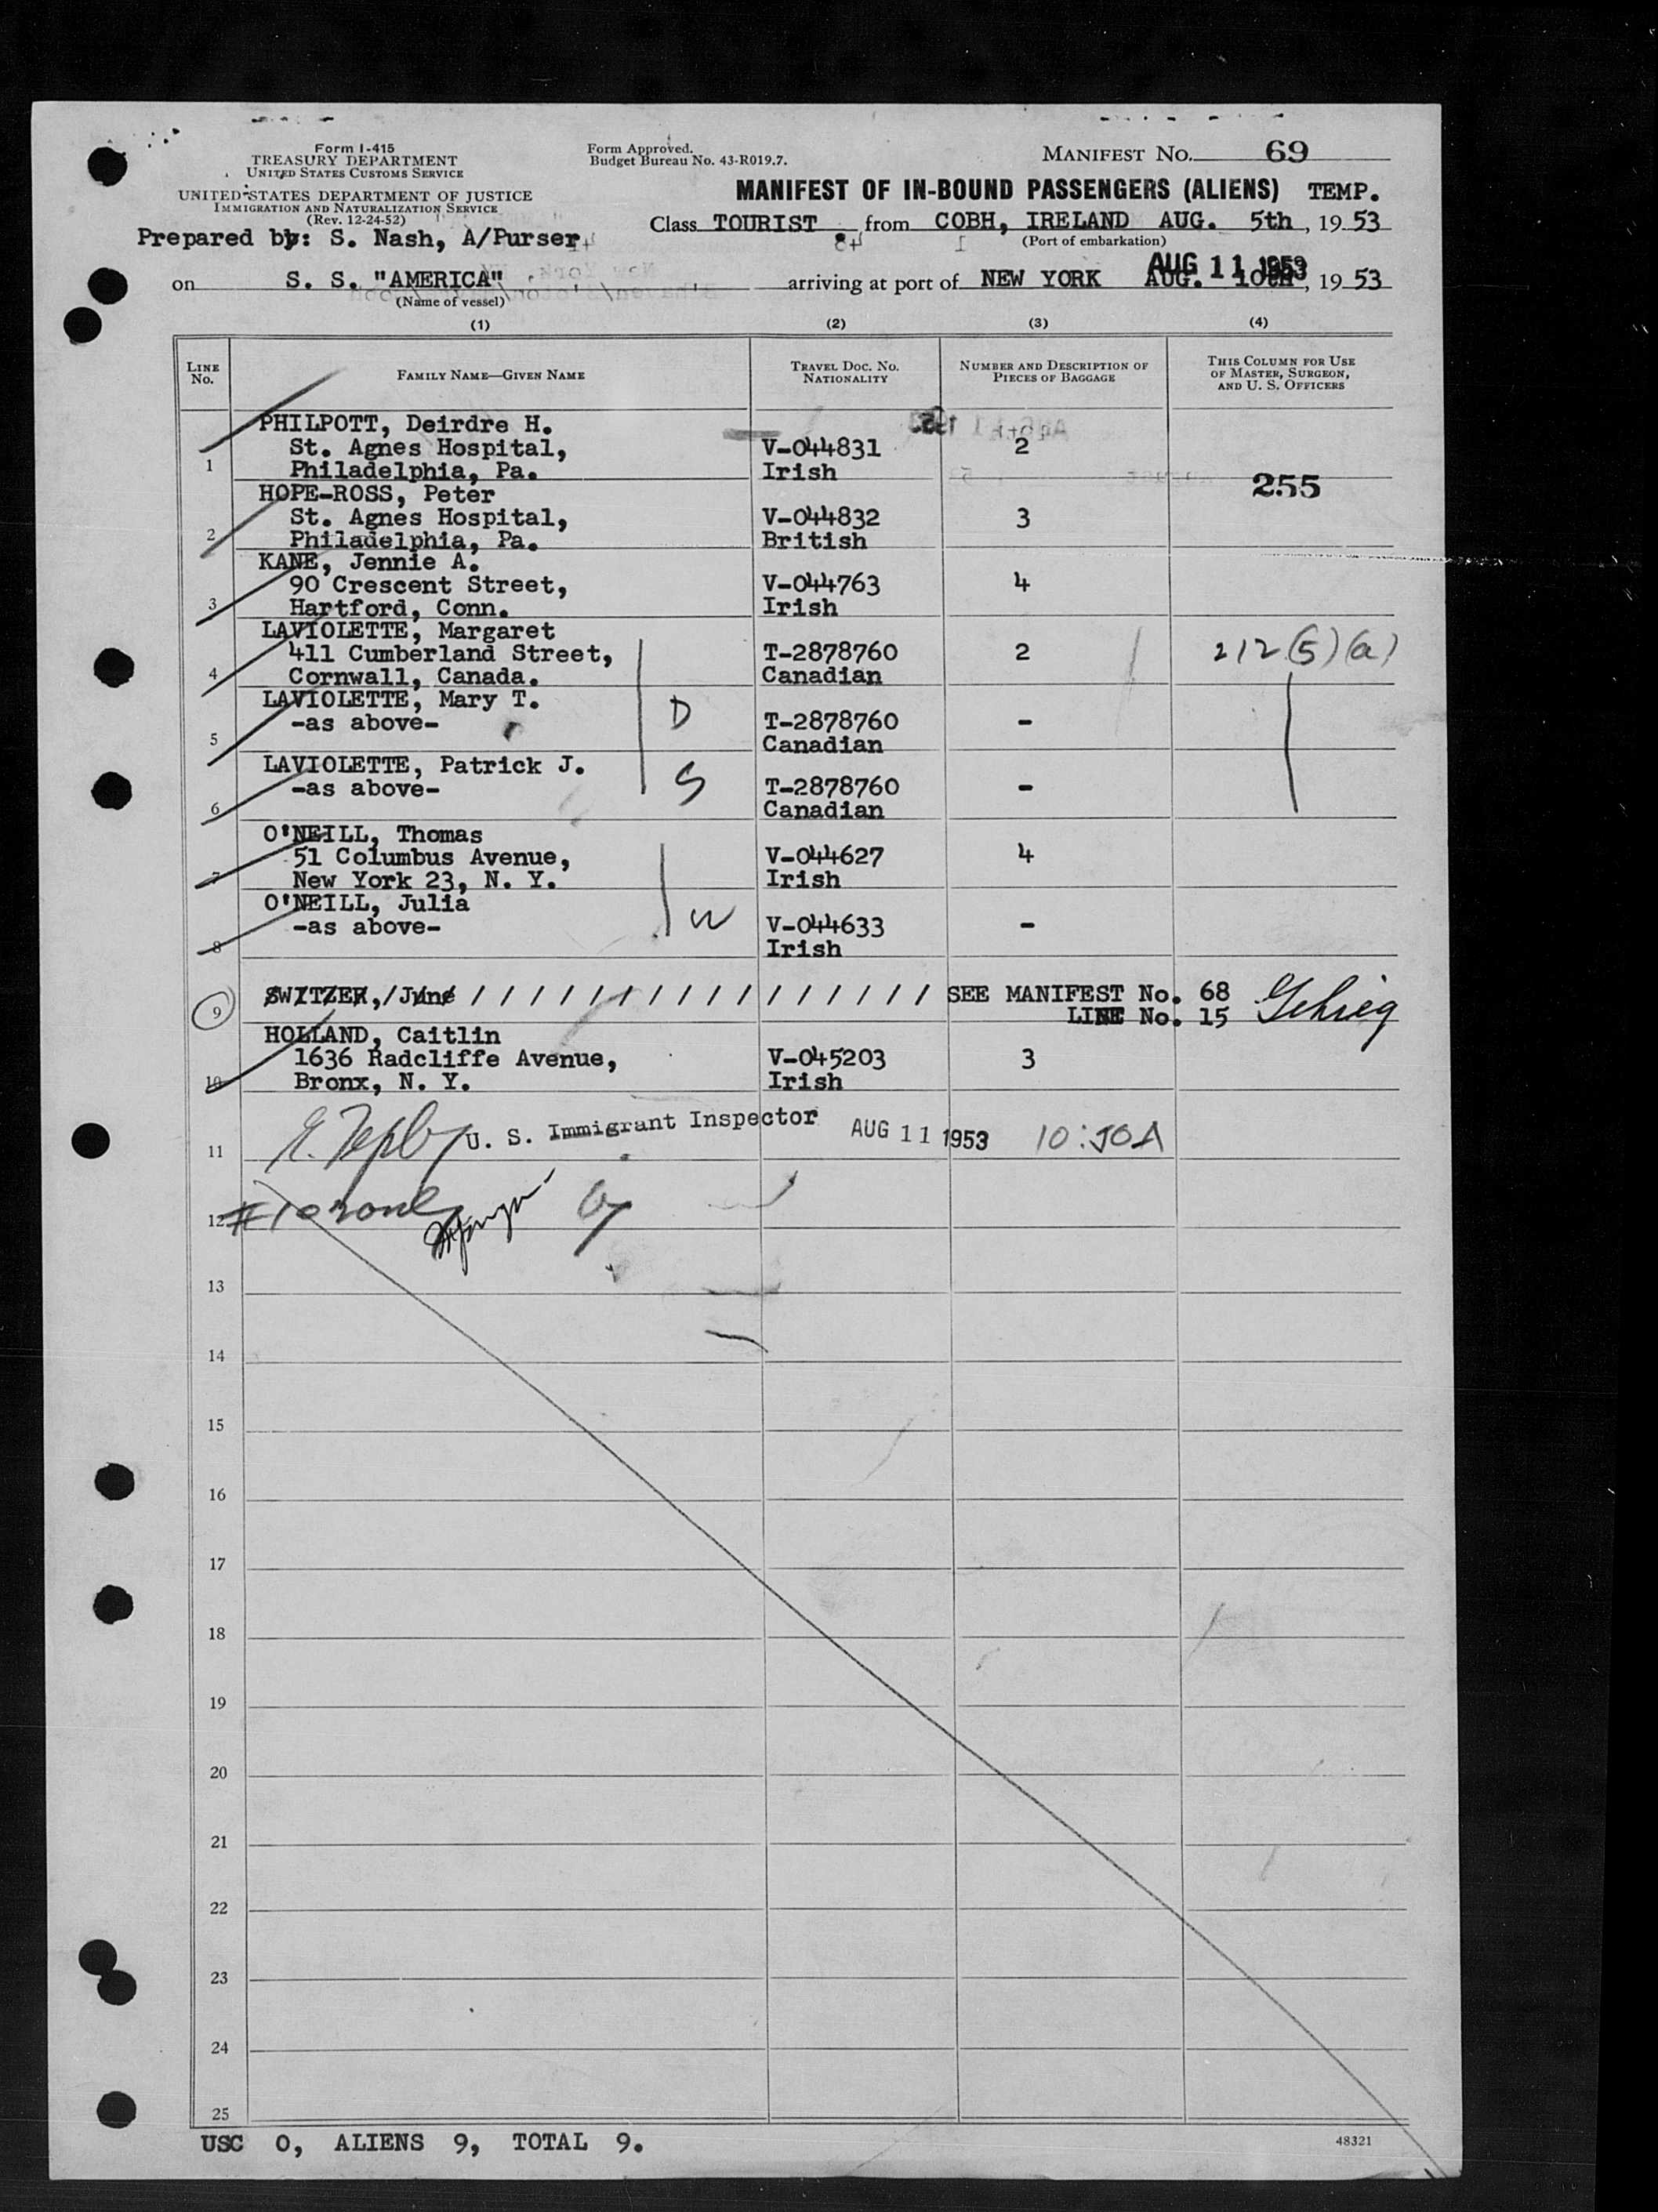 Form I-415
TREASURY DEPARTMENT
UNITED STATES CUSTOMS SERVICE
UNITED STATES DEPARTMENT OF JUSTICE
IMMIGRATION AND NATURALIZATION SERVICE
(Rev. 12-24-52)
Prepared by: S. Nash, A/Purser
Form Approved.
Budget Bureau No. 43-R019.7.
MANIFEST NO. 69
MANIFEST OF IN-BOUND PASSENGERS (ALIENS) TEMP.
Class TOURIST from COBH, IRELAND AUG. 5th, 19 53
(Port of embarkation)
AUG 11 1953
on S. S. "AMERICA" arriving at port of NEW YORK AUG. 10th, 19 53
(Name of vessel)
(1) (2) (3) (4)
LINE NO.
FAMILY NAME—GIVEN NAME
TRAVEL DOC. NO. NATIONALITY
NUMBER AND DESCRIPTION OF PIECES OF BAGGAGE
THIS COLUMN FOR USE OF MASTER, SURGEON, AND U. S. OFFICERS
PHILPOTT, Deirdre H.
St. Agnes Hospital, V-044831 2
1 Philadelphia, Pa. Irish
255
HOPE-ROSS, Peter
St. Agnes Hospital, V-044832 3
2 Philadelphia, Pa. British
KANE, Jennie A.
90 Crescent Street, V-044763 4
3 Hartford, Conn. Irish
LAVIOLETTE, Margaret
411 Cumberland Street, T-2878760 2 212(5)(a)
4 Cornwall, Canada. Canadian
LAVIOLETTE, Mary T.
-as above- D T-2878760 -
5 Canadian
LAVIOLETTE, Patrick J.
-as above- S T-2878760 -
6 Canadian
O'NEILL, Thomas
51 Columbus Avenue, V-044627 4
7 New York 23, N. Y. Irish
O'NEILL, Julia
-as above- W V-044633 -
8 Irish
9 SWITZER, June / / / / / / / / / / / / / / / / / SEE MANIFEST No. 68 Gehrig
LINE No. 15
HOLLAND, Caitlin
1636 Radcliffe Avenue, V-045203 3
10 Bronx, N. Y. Irish
U. S. Immigrant Inspector AUG 11 1953 10:50A
11
12
13
14
15
16
17
18
19
20
21
22
23
24
25
USC 0, ALIENS 9, TOTAL 9.
48321